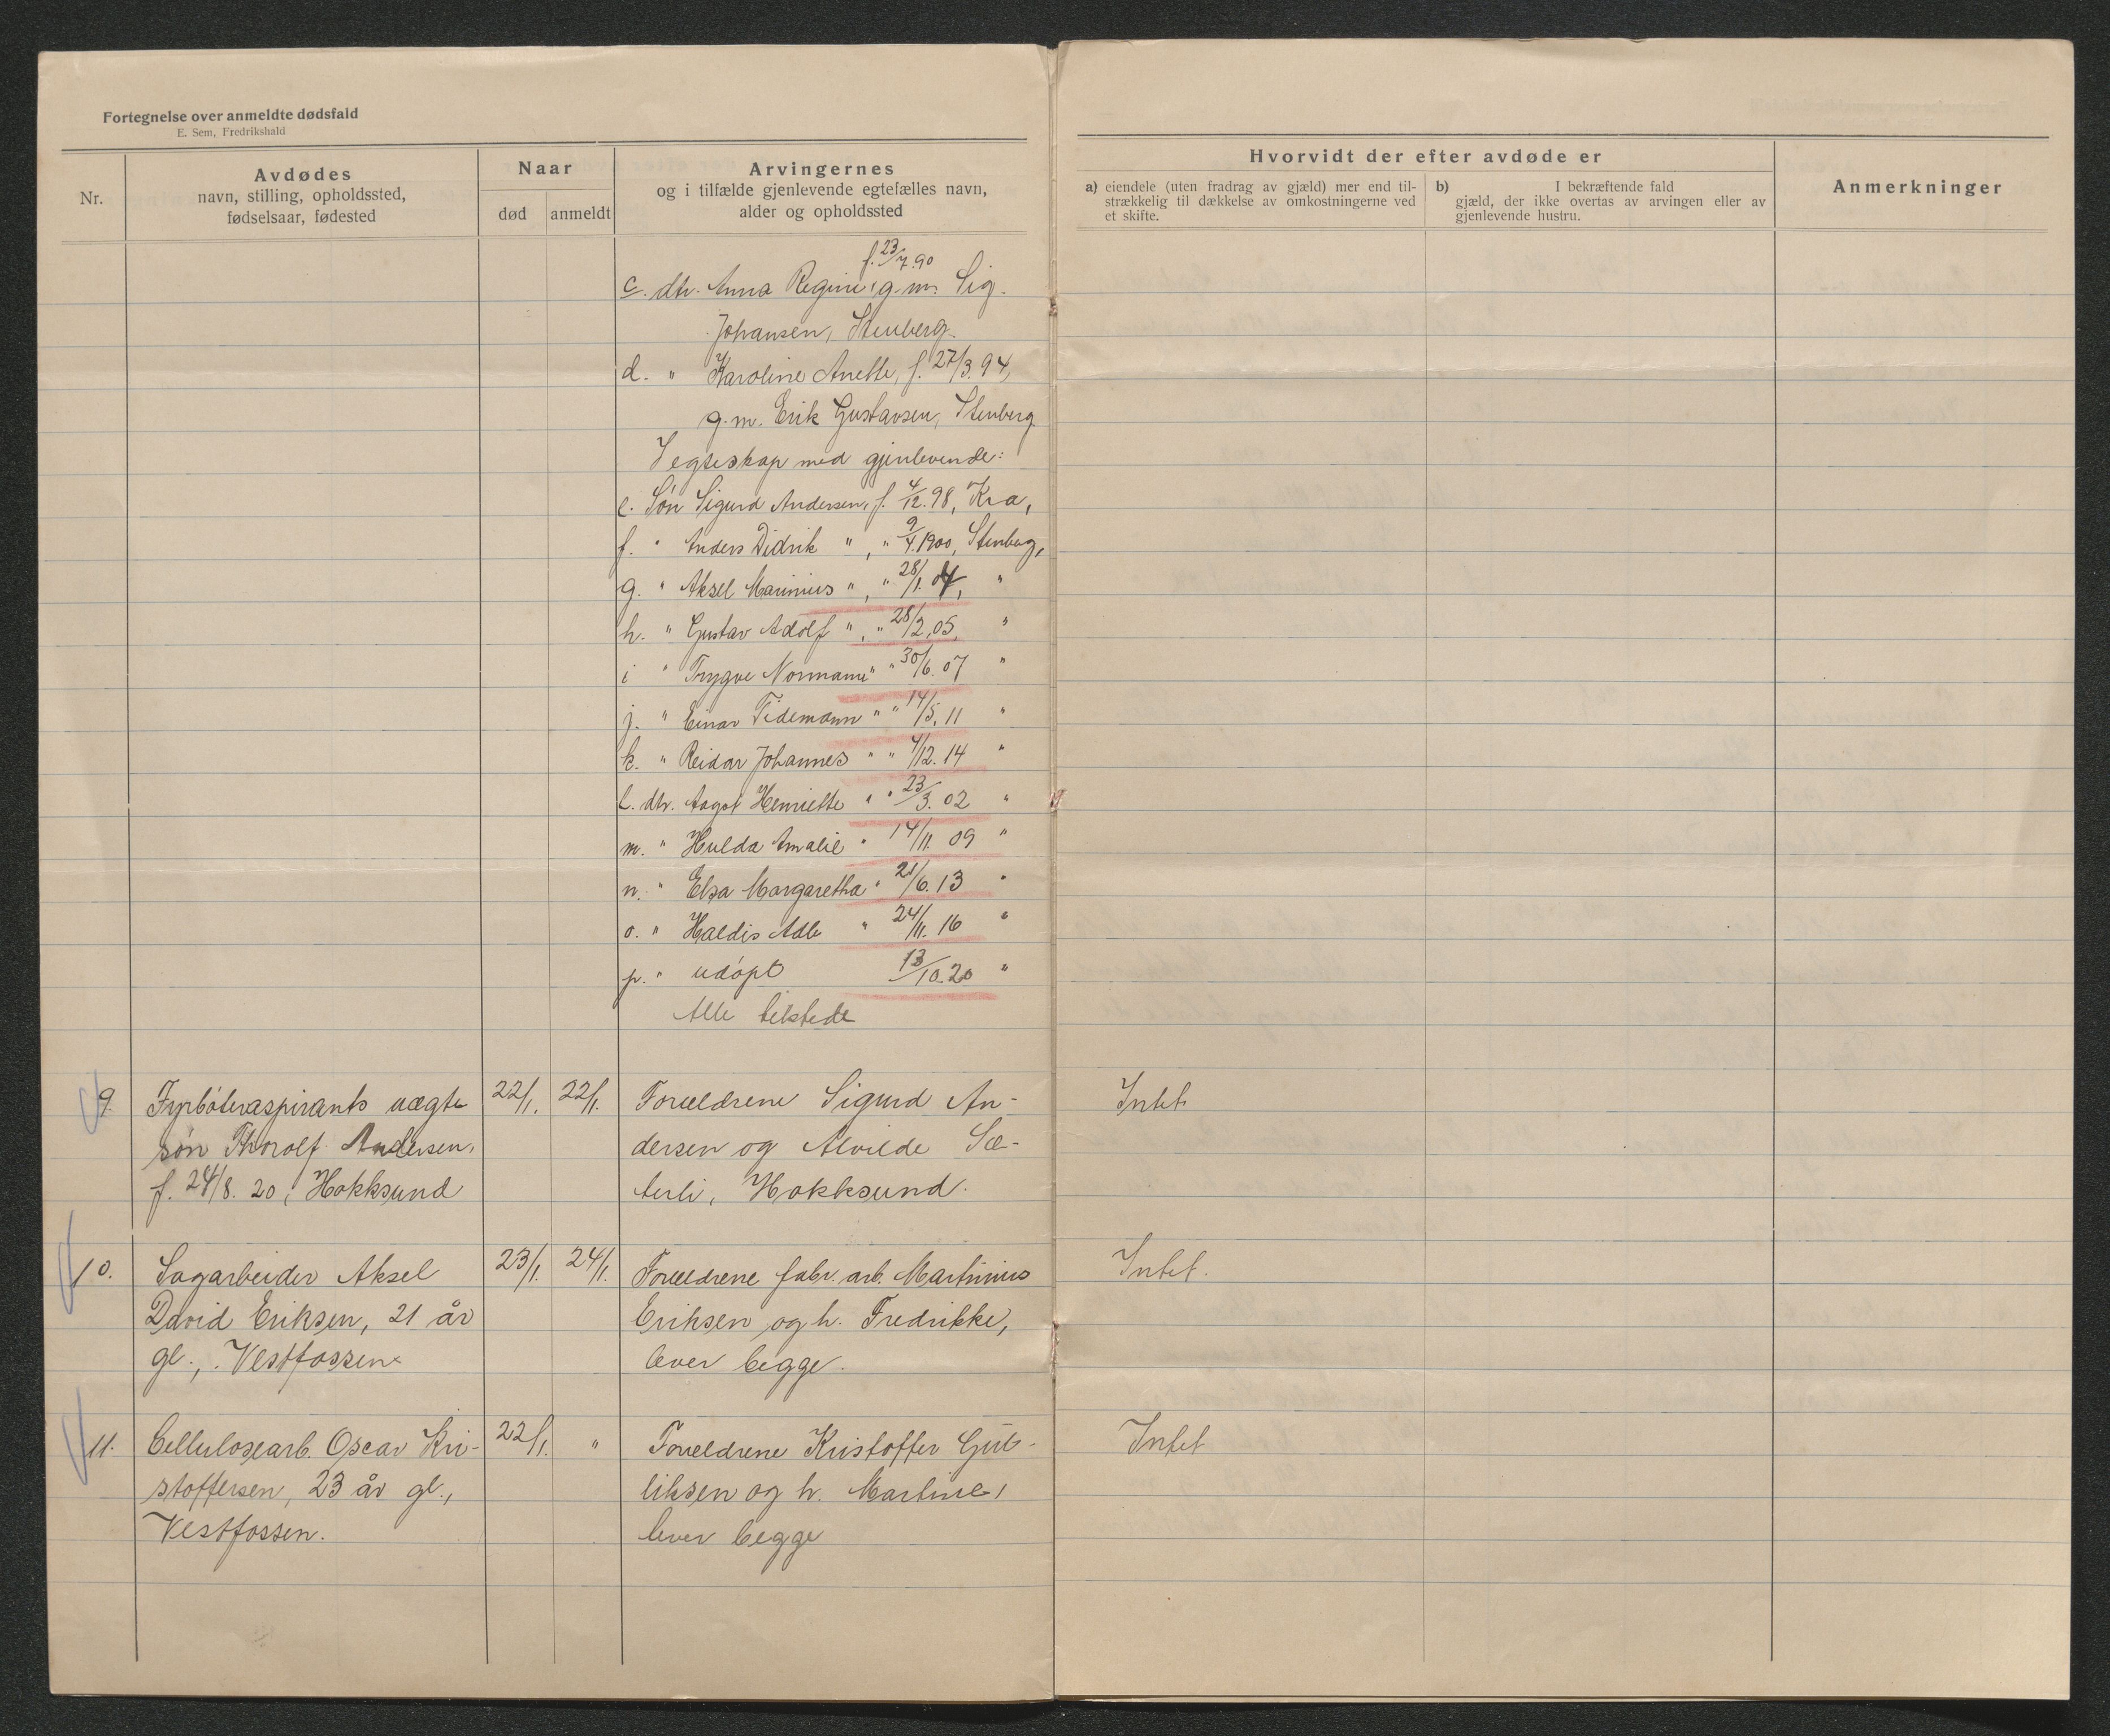 Fortegnelse over anmeldte dødsfald
E. Sem, Fredrikshald
Nr.
Avdødes
navn, stilling, opholdssted,
fødselsaar, fødested
Naar
død
anmeldt
Arvingernes
og i tilfælde gjenlevende egtefælles navn,
alder og opholdssted
Hvorvidt der efter avdøde er
a) eiendele (uten fradrag av gjæld) mer end til-
strækkelig til dækkelse av omkostningerne ved
et skifte.
b) I bekræftende fald
gjæld, der ikke overtas av arvingen eller av
gjenlevende hustru.
Anmerkninger
f. 23/7.90
c. dtr. Anna Regine, g.m. Sig.
Johansen, Stenberg.
d. " Karoline Anette, f. 27/3.94,
g.m. Erik Gustavsen, Stenberg
I egteskap med gjenlevende:
e. Søn Sigurd Andersen, f. 4/12.98, Kra,
f. " Anders Didrik ", " 9/4.1900, Stenberg,
g. " Aksel Marinius ", " 28/1.04, "
h. " Gustav Adolf ", " 28/2.05, "
i " Trygve Normann " " 30/6.07 "
j. " Einar Tidemann " " 14/5.11 "
k. " Reidar Johannes " " 4/12.14 "
l. dtr. Aagot Henriette " " 23/3.02 "
m. " Hulda Amalie " 14/11.09 "
n. " Elsa Margaretha " 21/6.13 "
o. " Haldis Adle " 24/11.16 "
p. " udøpt 13/10.20 "
Alle tilstede
9. Fyrbøteraspirants uægte 22/1. 22/1. Forældrene Sigurd An- Intet
søn Thorolf Andersen, dersen og Alvilde Sæ-
f. 24/8.20, Hokksund terli, Hokksund.
10. Sagarbeider Aksel 23/1. 24/1. Forældrene fabr. arb. Martinius Intet.
David Eriksen, 21 år Eriksen og h. Fredrikke,
gl., Vestfossen lever begge.
11. Cellulosearb. Oscar Kri- 22/1. " Forældrene Kristoffer Gul- Intet
stoffersen, 23 år gl., liksen og h. Martine,
Vestfossen. lever begge